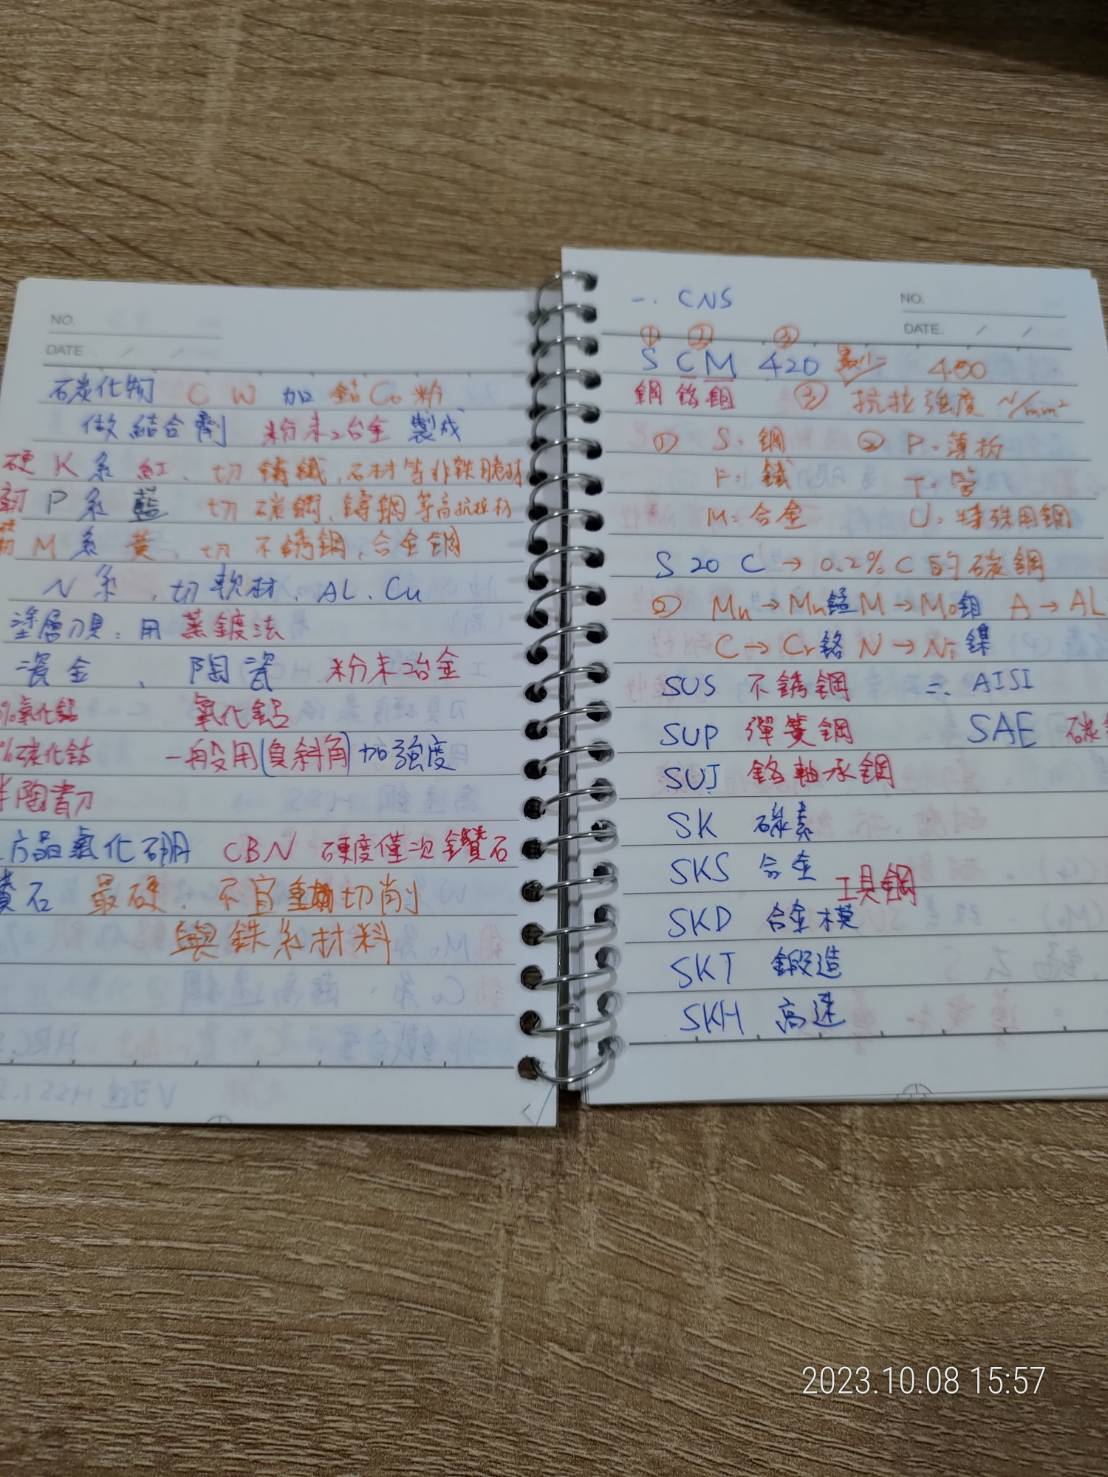 NO.
DATE / /
碳化物 C W 加 鈷Co 粉
做 結合劑 粉末冶金 製成
硬 K 系 紅、切 鑄鐵,石材等非鐵脆材
韌 P 系 藍 切 碳鋼,鑄鋼等高抗拉材
M 系 黃、切 不銹鋼,合金鋼
N 系 、切 軟材、AL.Cu
塗層刀具:用 蒸鍍法
瓷金 、 陶瓷 粉末冶金
%氧化鋁 氧化鋁
%碳化鈦 一般用(負斜角)加強度
半陶瓷刀
方晶氮化硼 CBN 硬度僅次鑽石
石 最硬、不宜 切削
與鉄系材料
NO.
DATE / /
一. CNS
① ② ③
S C M 420 最小= 400
鋼 鉻鉬 ③ 抗拉強度 N/mm²
① S.鋼 ② P.薄板
F.鐵 T.管
M.合金 U.特殊用鋼
S 20 C → 0.2% C 的碳鋼
② Mn → Mn錳 M → Mo鉬 A → AL
C → Cr鉻 N → Ni 鎳
SUS 不銹鋼 二. AISI
SUP 彈簧鋼 SAE 碳
SUJ 鉻軸承鋼
SK 碳素
SKS 合金 工具鋼
SKD 合金模
SKT 鍛造
SKH 高速
2023.10.08 15:57